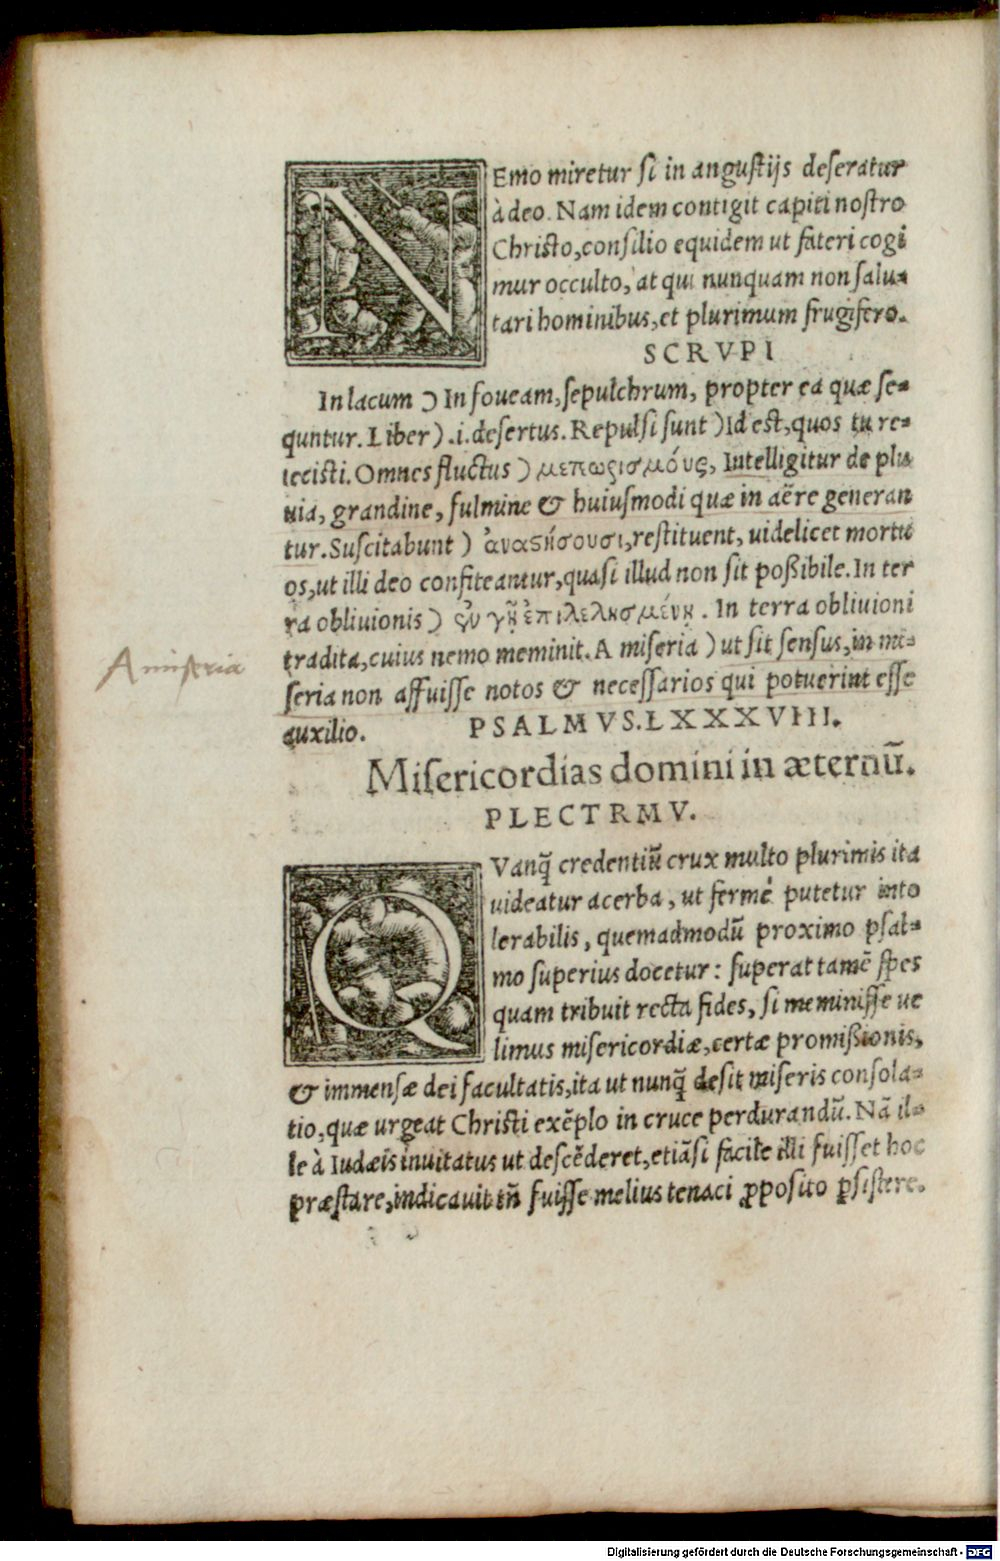 NEmo miretur si in angustijs deseratur
à deo. Nam idem contigit capiti nostro
Christo, consilio equidem ut fateri cogi
mur occulto, at qui nunquam non salu-
tari hominibus, et plurimum frugifero.
SCRVPI
In lacum ) In foueam, sepulchrum, propter ea quæ se-
quntur. Liber ) .i. desertus. Repulsi sunt ) Id est, quos tu re-
iecisti. Omnes fluctus ) μεπωρισμόυς, Intelligitur de plu
uia, grandine, fulmine & huiusmodi quæ in aëre generan
tur. Suscitabunt ) ἀναστήσουσι, restituent, uidelicet mortu
os, ut illi deo confiteantur, quasi illud non sit possibile. In ter
ra obliuionis ) ἐν γῇ ἐπιλελησμένῃ. In terra obliuioni
tradita, cuius nemo meminit. A miseria ) ut sit sensus, in mi-
A miseria
seria non affuisse notos & necessarios qui potuerint esse
auxilio. PSALMVS. LXXXVIII.
Misericordias domini in æternū.
PLECTRMV.
QVanq̃ credentiũ crux multo plurimis ita
uideatur acerba, ut fermè putetur into
lerabilis, quemadmodũ proximo psal-
mo superius docetur: superat tamẽ spes
quam tribuit recta fides, si meminisse ue
limus misericordiæ, certæ promissionis,
& immensæ dei facultatis, ita ut nunq̃ desit miseris consola-
tio, quæ urgeat Christi exẽplo in cruce perdurandũ. Nã il-
le à Iudæis inuitatus ut descẽderet, etiãsi facile illi fuisset hoc
præstare, indicauit tñ fuisse melius tenaci ꝓposito ꝑsistere.
Digitalisierung gefördert durch die Deutsche Forschungsgemeinschaft - DFG